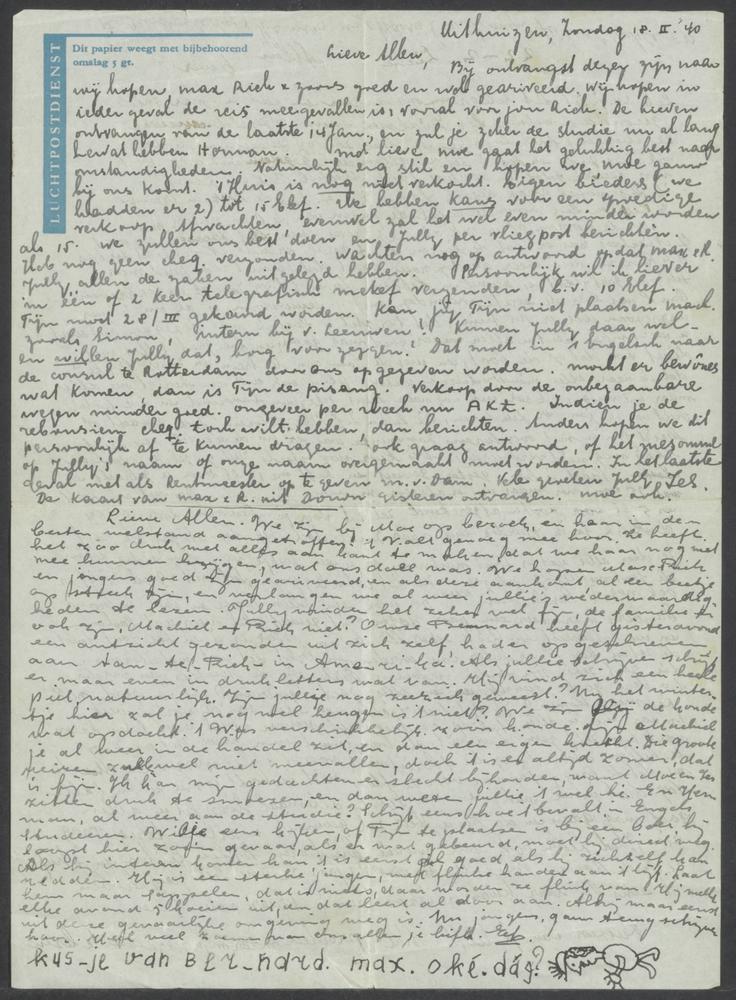 Uithuizen, Zondag 18. II. '40
LUCHTPOSTDIENST
Dit papier weegt met bijbehoorend
omslag 5 gr.
Lieve Allen, Bij ontvangst dezer zijn naar
wij hopen, max Rich & zoons goed en wel gearriveerd. Wij hopen in
ieder geval de reis meegevallen is, vooral voor jou Rich. De brieven
ontvangen van de laatste 14 Jan., en zul je zeker de studie nu al lang
hervat hebben Herman. lieve moe gaat het gelukkig best naar
omstandigheden. Natuurlijk erg stil en hopen we, moe gauw
bij ons komt. 't Huis is nog niet verkocht. Eigen bieders (we
hadden er 2) tot 15 Elf. We hebben kans voor een spoedige
verkoop verwachten, evenwel zal het wel even minder worden
als 15. We zullen ons best doen en Jully per vliegpost berichten.
Heb nog geen cheq. verzonden. Wachten nog op antwoord opdat max & R.
Jully allen de zaken uitgelegd hebben. Persoonlijk wil ik liever
in één of 2 keer telegrafisch verzenden, b.v. 10 Elf.
Tijn moet 28/III gekeurd worden. Kan jij Tijn niet plaatsen mach.
zooals Simon, intern bij v. Leeuwen? Kunnen Jully daar wel
en willen Jully dat, borg voor zeggen? Dat moet in 't Engelsch naar
de consul te Rotterdam door ons opgegeven worden. mocht er bewônes
wat komen, dan is Tijn de pisang. Verkoop door de onbegaanbare
wegen minder goed. ongeveer per week nu AKt. Indien je de
cheq. toch wilt hebben, dan berichten. Anders hopen we dit
persoonlijk af te kunnen dragen. ook graag antwoord, of het
op Jully's naam of onze naam overgemaakt moet worden. In het laatste
geval met als Rentmeester op te geven m. v. Dam. Vele groeten Jully Jes.
De kaart van max & R. uit Dover gisteren ontvangen. moe ook.
Lieve Allen. We zijn bij Moe op bezoek, en haar in den
besten welstand aangetroffen. 't Valt genoeg mee hoor. Ze heeft
het zoo druk met alles aan kant te maken, dat we haar nog niet
mee kunnen krijgen, wat ons doel was. We hopen Max Rich
en jongens goed zijn gearriveerd, en als deze aankomt al een beetje
op streek zijn, en verlangen we al weer jullie's wedermaardig
heden te lezen. Jullie vinden het zeker wel fijn, de familie bij
ook zijn, Machiel en Rich niet? Onze Bernard heeft gisteravond
een antzicht gezonden uit zich zelf, hader opgeschreven
aan tan-te Rich in Ameri-ka. Als jullie schrijven schrijf
er maar even in drukletters wat van. Hij vind zich een heele
Piet, natuurlijk. Zijn jullie nog zeeziek geweest? Nu het winter-
tje hier zal je nog wel heugen is 't niet? We zijn de honde
wat opdocht. 't Was verschrikkelijk zoon honde. zijn Machiel
je al weer in de handel zit, en dan een eigen knecht. Die groote
reizen zullen wel niet meevallen, doch 't is er altijd zomer, dat
is fijn. Ik kan mijn gedachten er slecht bijhouden, want Moe en Jes
zitten druk te smoezen, en dan weten jullie 't wel he. En Her
man, al meer aan de studie? Schrijf eens hoe 't bevalt in Engels
studeeren. Wille eens kijken, of Tijn te plaatsen is bij een boer, hij
loopt hier zoo'n gevaar, als er wat gebeurd, moet hij direct weg.
Als hij intern komen kan 't is eerst ook goed, als hij zichzelf kan
redden. Hij is een sterke jongen, met flinke handen aan 't lijf. Laat
hem maar sappelen, dat is niets, daar worden ze flink van. Hij melkt
elke avond 5 koeien uit, en dat leert al door aan. Als hij maar eerst
uit deze gevaarlijke omgeving weg is. Nu jongens, gauw terug schrijven
hoor. Heel veel zoenen van ons allen je liefh. Ef.
kus-je van Ber-nard. max. oké. dág?